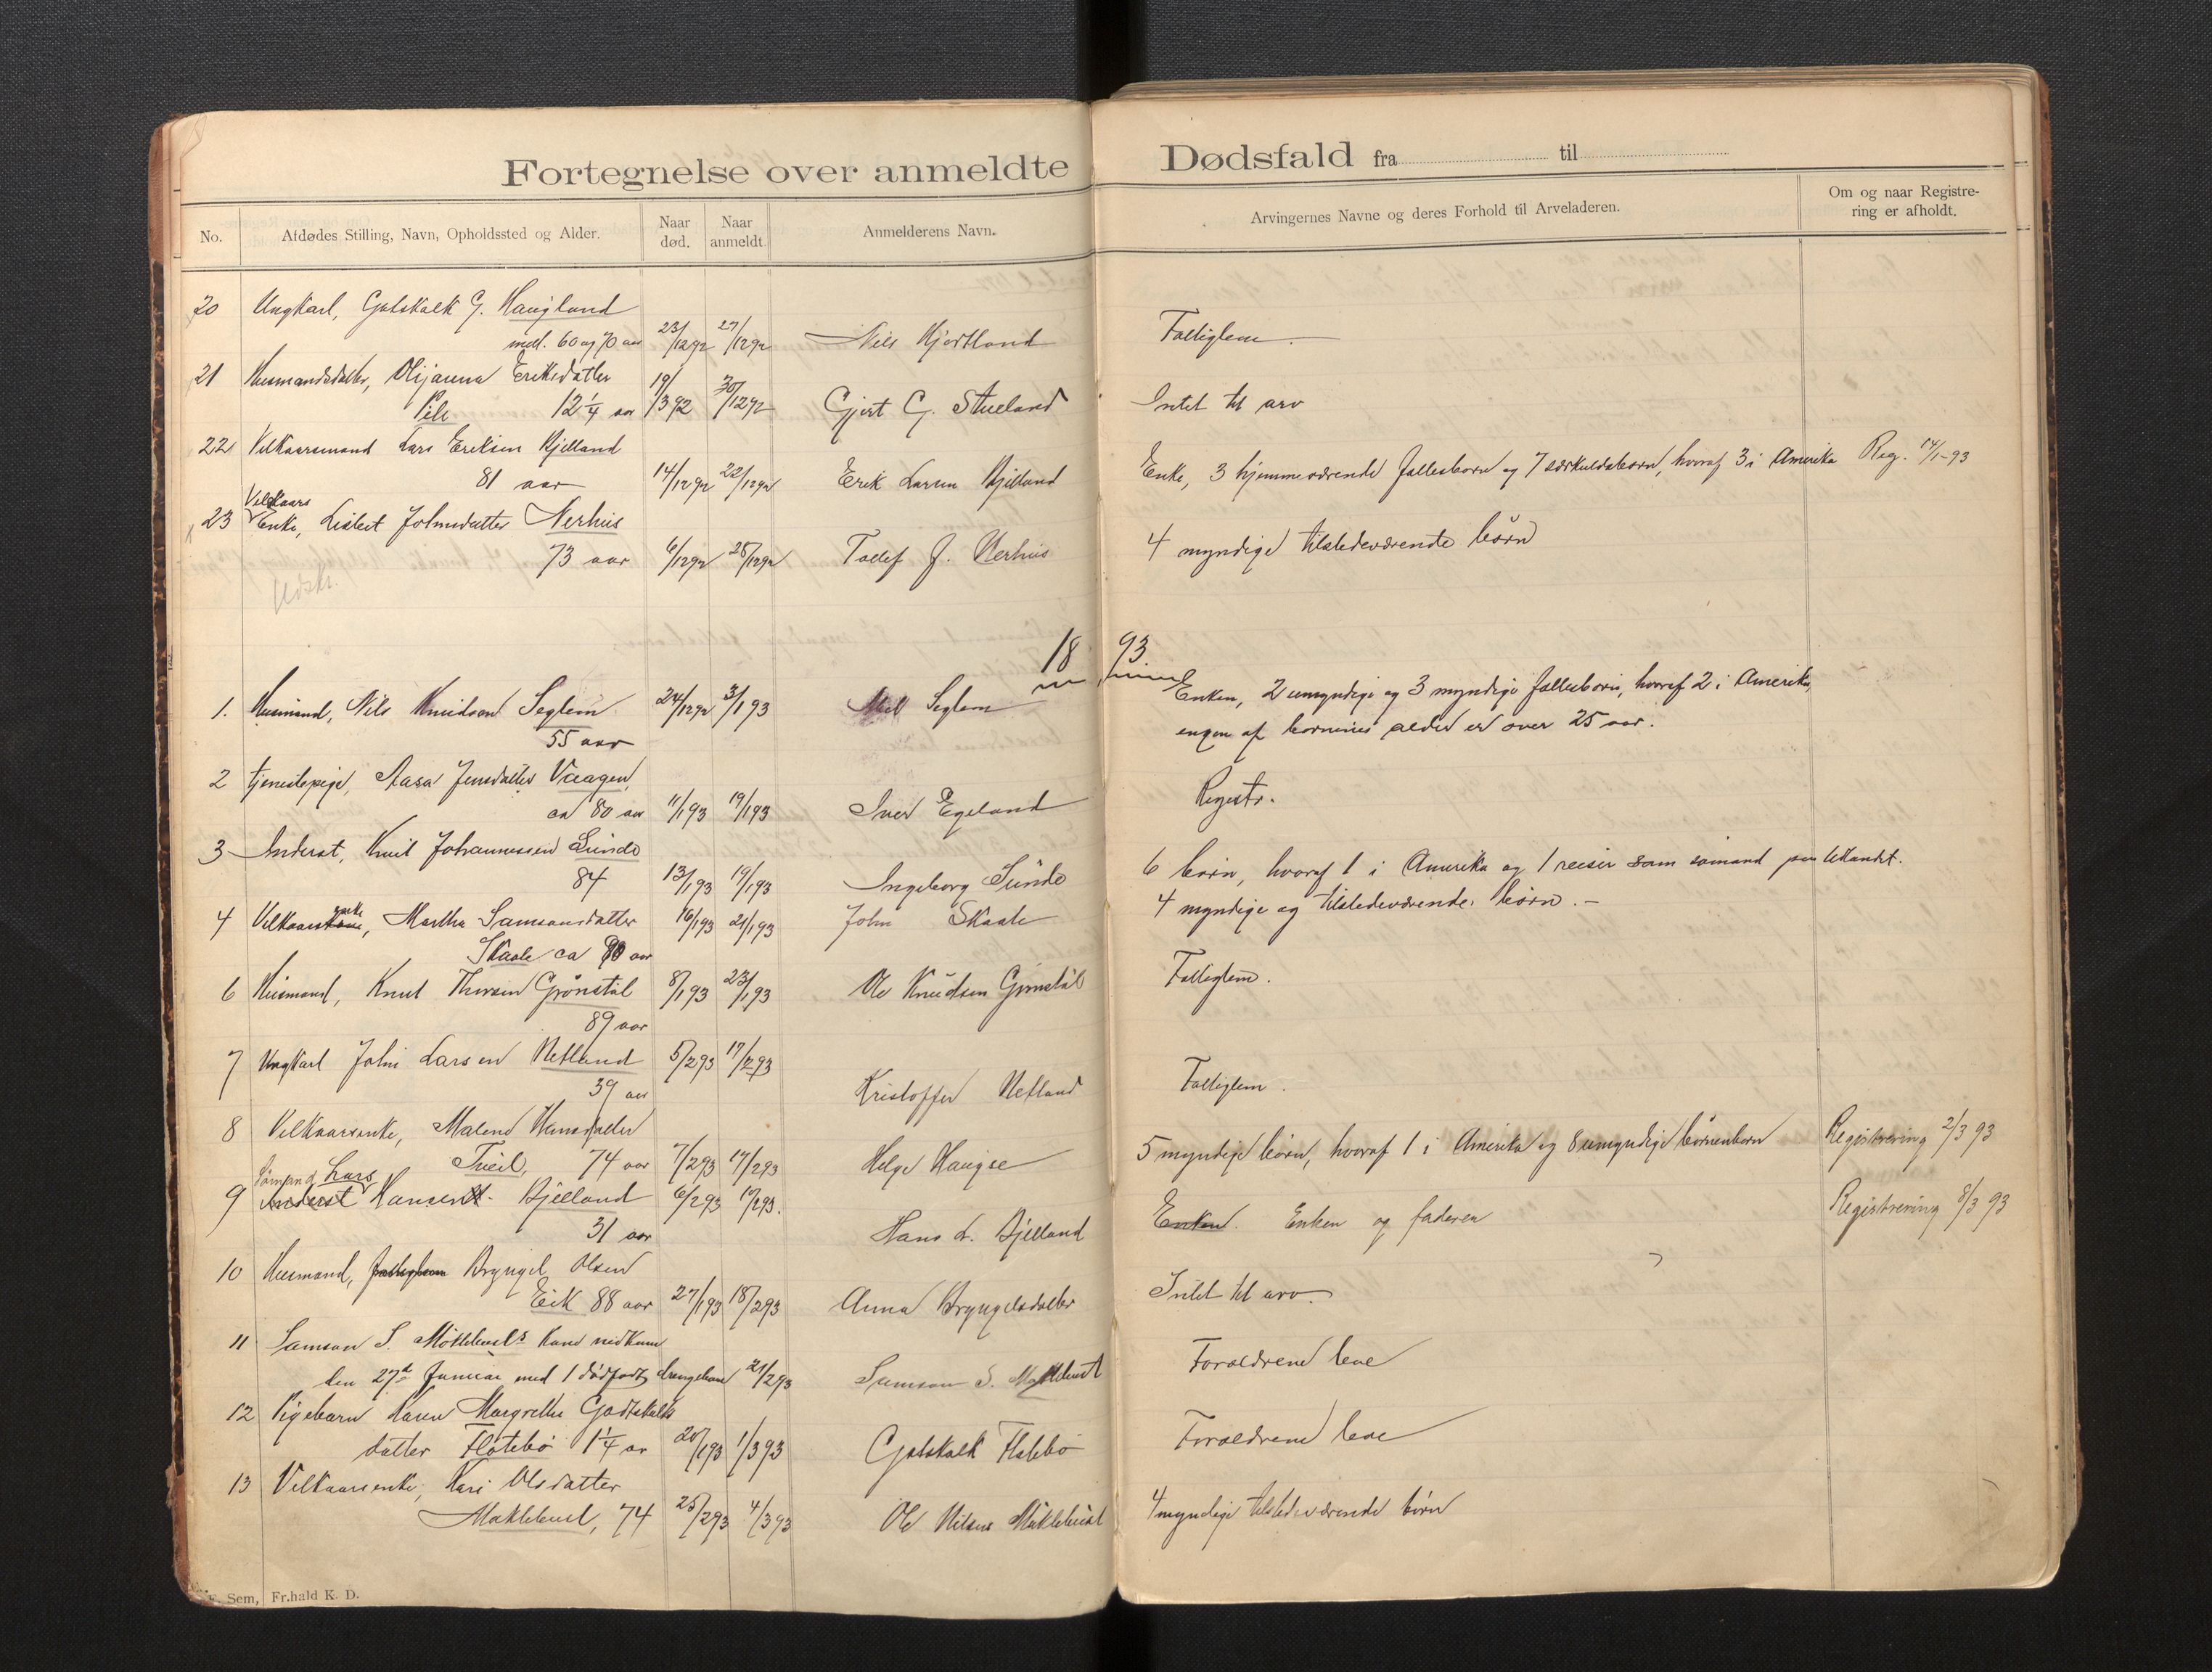 Fortegnelse over anmeldte Dødsfald fra til
No. Afdødes Stilling, Navn, Opholdssted og Alder. Naar død. Naar anmeldt. Anmelderens Navn. Arvingernes Navne og deres Forhold til Arveladeren. Om og naar Registrering er afholdt.
20 Ungkarl, Gotskalk G. Haugland
mell. 60 og 70 aar 23/1292 27/1292 Nils Hjortland Fattiglem.
21 Husmandsdatter, Olijanna Eriksdatter
12 1/4 aar 19/392 30/1292 Gjert G. Stueland Intet til arv
22 Vilkaarsmand Lars Eriksen Bjelland
81 aar 14/1292 22/1292 Erik Larsen Bjelland Enke, 3 hjemmeværende fællesbørn og 7 særkuldsbørn, hvoraf 3 i Amerika Reg. 14/1-93
Vilkaars
23 Enke, Lisbet Johnsdatter Nerhus
73 aar 6/1292 28/1292 Tollef J. Nerhus 4 myndige tilstedeværende børn
Udskr.
18 93.
1. Husmand, Nils Knudsen Seglem 24/1292 3/193 Seglem Enken, 2 umyndige og 3 myndige fællesbørn, hvoraf 2 i Amerika,
55 aar ingen af børnenes alder er over 25 aar.
2 tjenestepige, Aasa Jensdatter Vaagen,
ca 80 aar 11/193 19/193 Iver Egeland Registr.
3 Inderst, Knut Johannessen Sunde
84 13/193 19/193 Ingeborg Sunde 6 børn, hvoraf 1 i Amerika og 1 reiser som sømand paa Udlandet.
4 Vilkaarsenke, Martha Samsonsdatter 16/193 21/193 John Skaale 4 myndige og tilstedeværende børn.-
Skaale ca 90 aar
6 Husmand, Knut Thorsen Grønstøl 8/193 23/193 Ole Knudsen Grønstøl Fattiglem.
89 aar
7 Ungkarl John Larsen Netland 5/293 17/293
39 aar Kristoffer Netland Fattiglem.
8 Vilkaarsenke, Malene Hansdatter
74 aar 7/293 17/293 Helge Haugse 5 myndige børn, hvoraf 1 i Amerika og 8 umyndige børnebørn Registrering 2/3 93
Sømand Lars
9 Inderst Hansen Bjelland 6/293 17/293. Enken. Enken og faderen Registrering 8/3 93
31 aar Hans L. Bjelland
10 Husmand, fattiglem Bryngel Olsen
Eik 88 aar 27/193 18/293 Anna Bryngelsdatter Intet til arv.
11 Samson S. Møklebusts kone nedkom
den 27de Januar med 1 dødfødt drengebarn 21/293 Samson S. Møklebust Forældrene leve
12 Pigebarn Karen Margrethe Godtskalks
datter Flatebø 1 1/4 aar 20/193 1/393 Gotskalk Flatebø Forældrene leve
13 Vilkaarsenke, Kari Olsdatter
Møklebust, 74 25/293 4/393 Ole Nilsen Møklebust 4 myndige tilstedeværende børn
Sem, Fr.hald K. D.